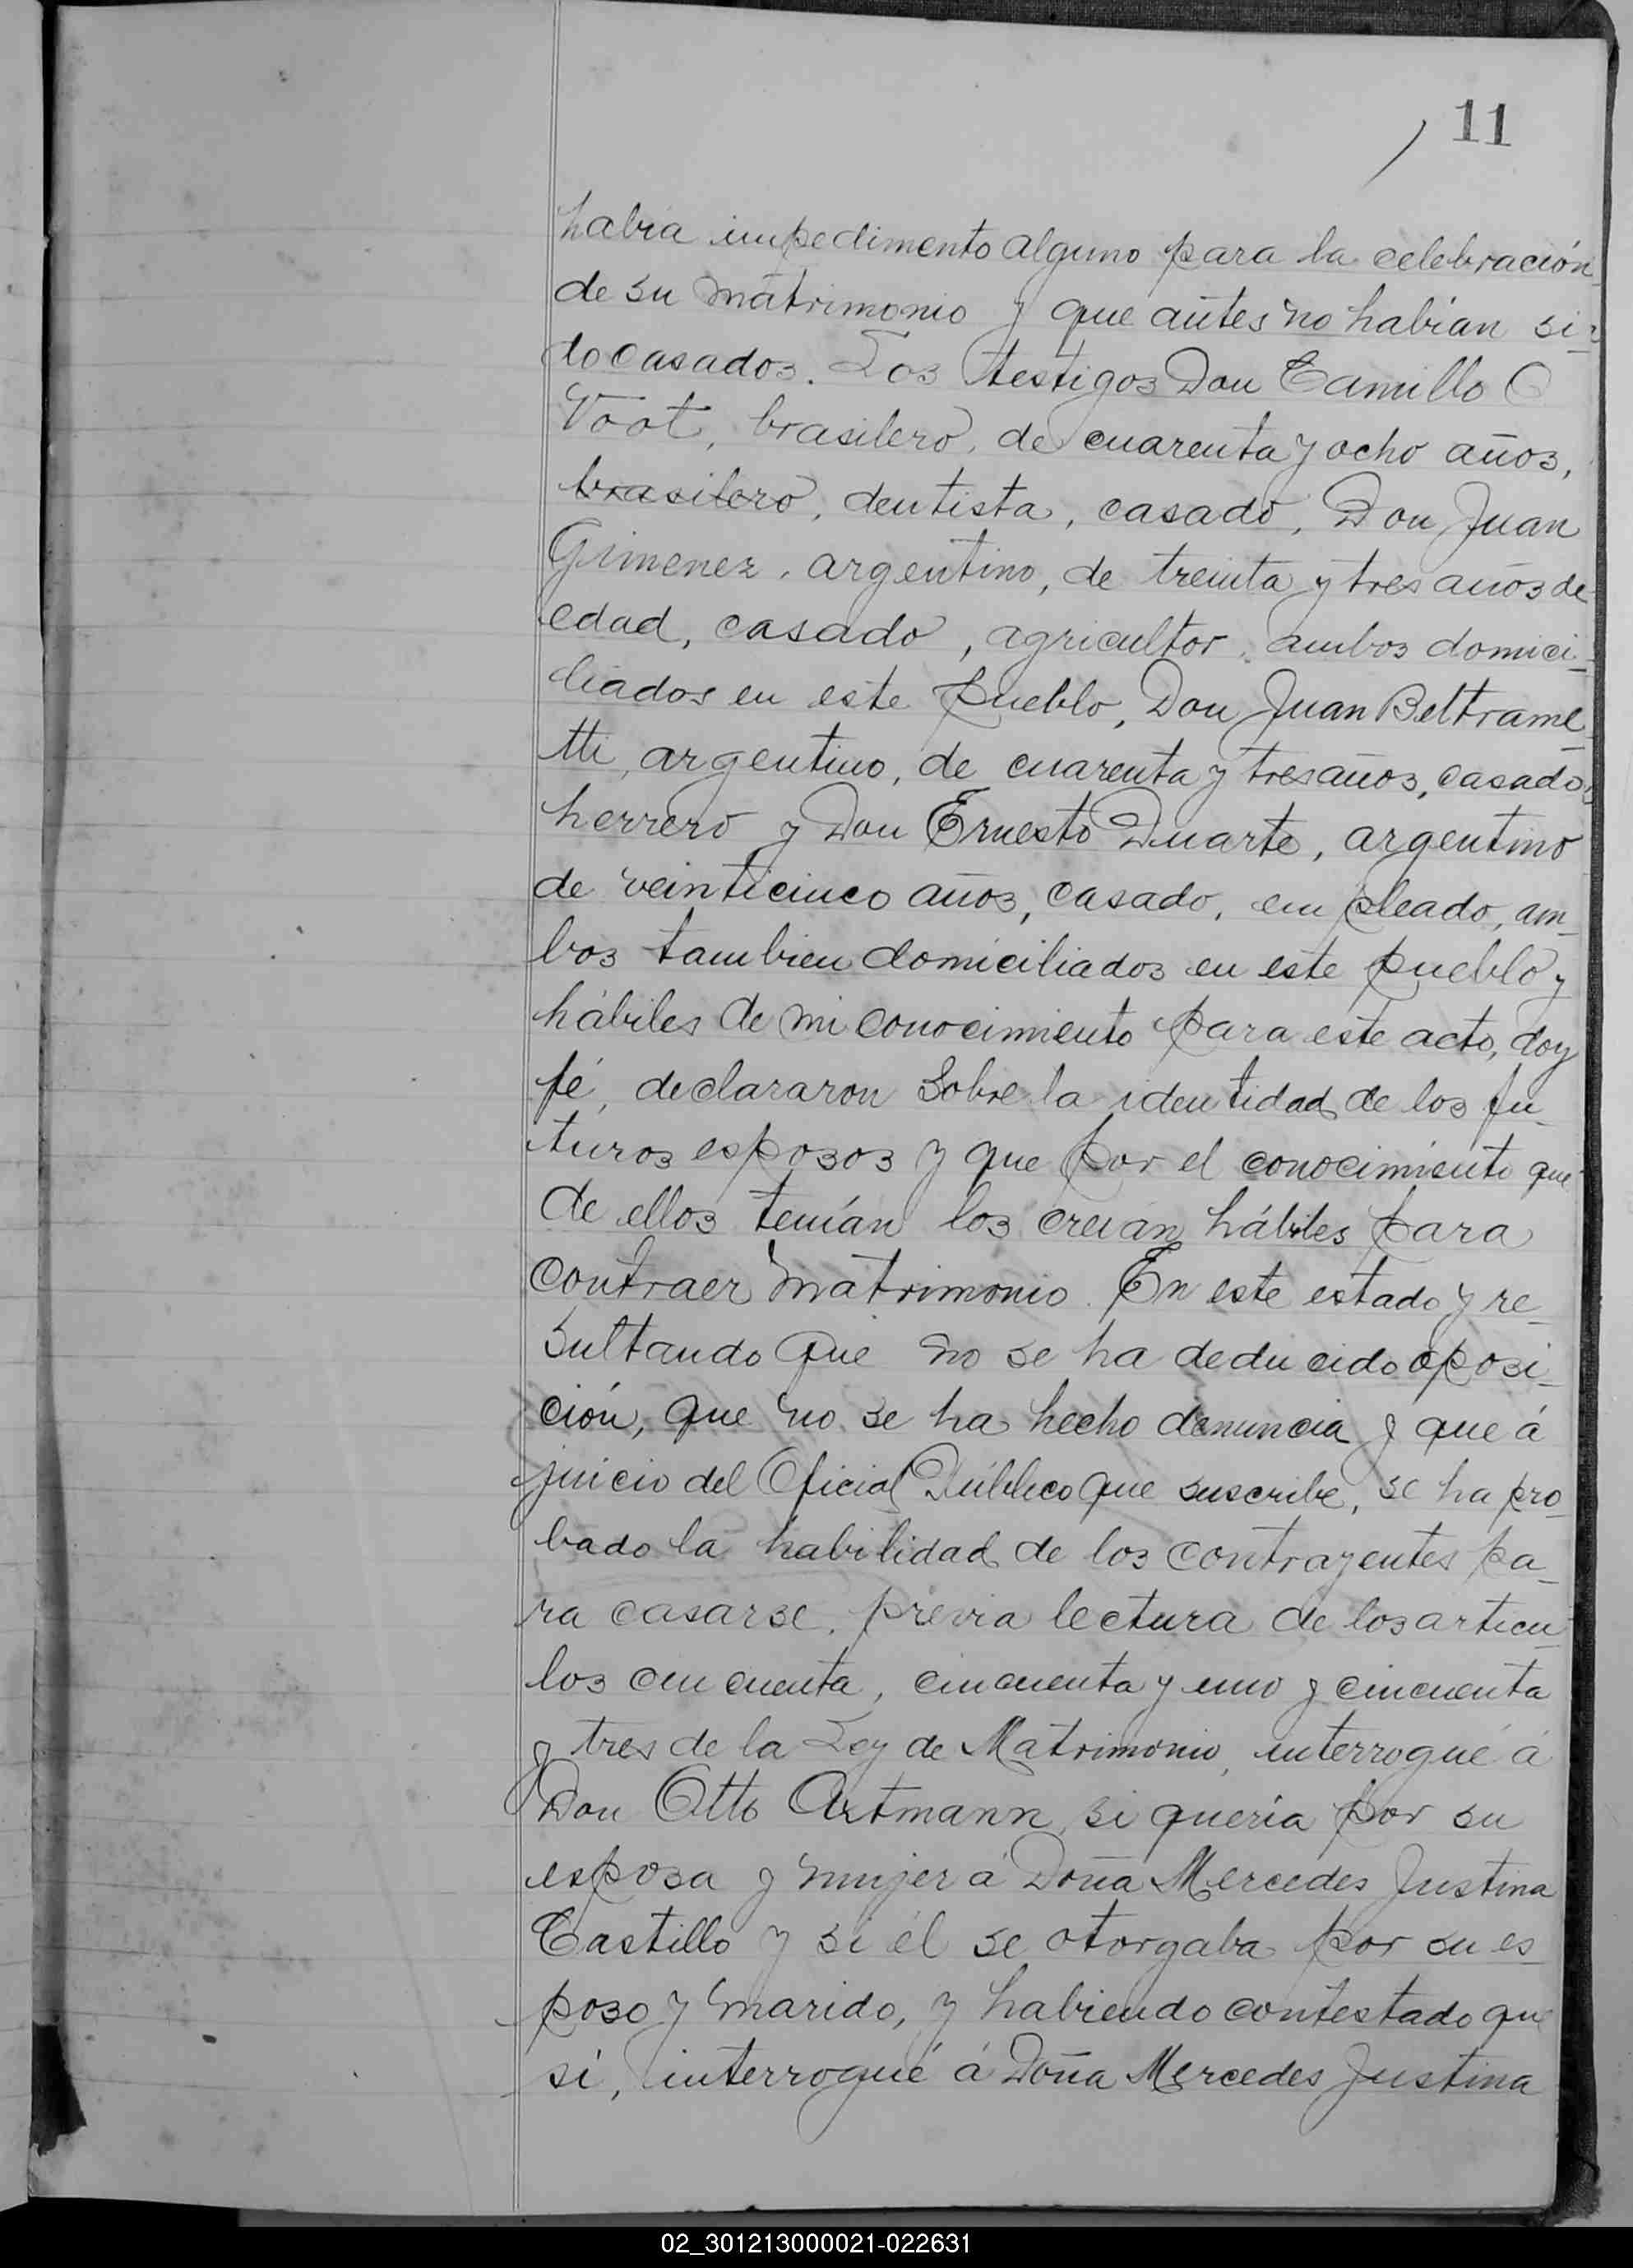 11
habia impedimento alguno para la celebración
de su matrimonio y que antes no habian si-
do casados. Los testigos Don Camillo C
Voot, brasilero, de cuarenta y ocho años,
brasilero, dentista, casado, Don Juan
Gimenez, argentino, de treinta y tres años de
edad, casado, agricultor, ambos domici-
liados en este pueblo, Don Juan Beltrame-
tti, argentino, de cuarenta y tres años, casado,
herrero y Don Ernesto Duarte, argentino
de veinticinco años, casado, empleado, am-
bos tambien domiciliados en este pueblo y
hábiles de mi conocimiento para este acto, doy
fé, declararon sobre la identidad de los fu-
turos esposos y que por el conocimiento que
de ellos tenían los creian hábiles para
contraer matrimonio. En este estado y re-
sultando que no se ha deducido oposi-
ción, que no se ha hecho denuncia y que á
juicio del Oficial Público que suscribe, se ha pro-
bado la habilidad de los contrayentes pa-
ra casarse, prévia lectura de los articu-
los cincuenta, cincuenta y uno y cincuenta
y tres de la Ley de Matrimonio, interrogué á
Don Otto Artmann si queria por su
esposa y mujer á Doña Mercedes Justina
Castillo y si él se otorgaba por su es-
poso y marido, y habiendo contestado que
si, interrogué á Doña Mercedes Justina
02_301213000021-022631